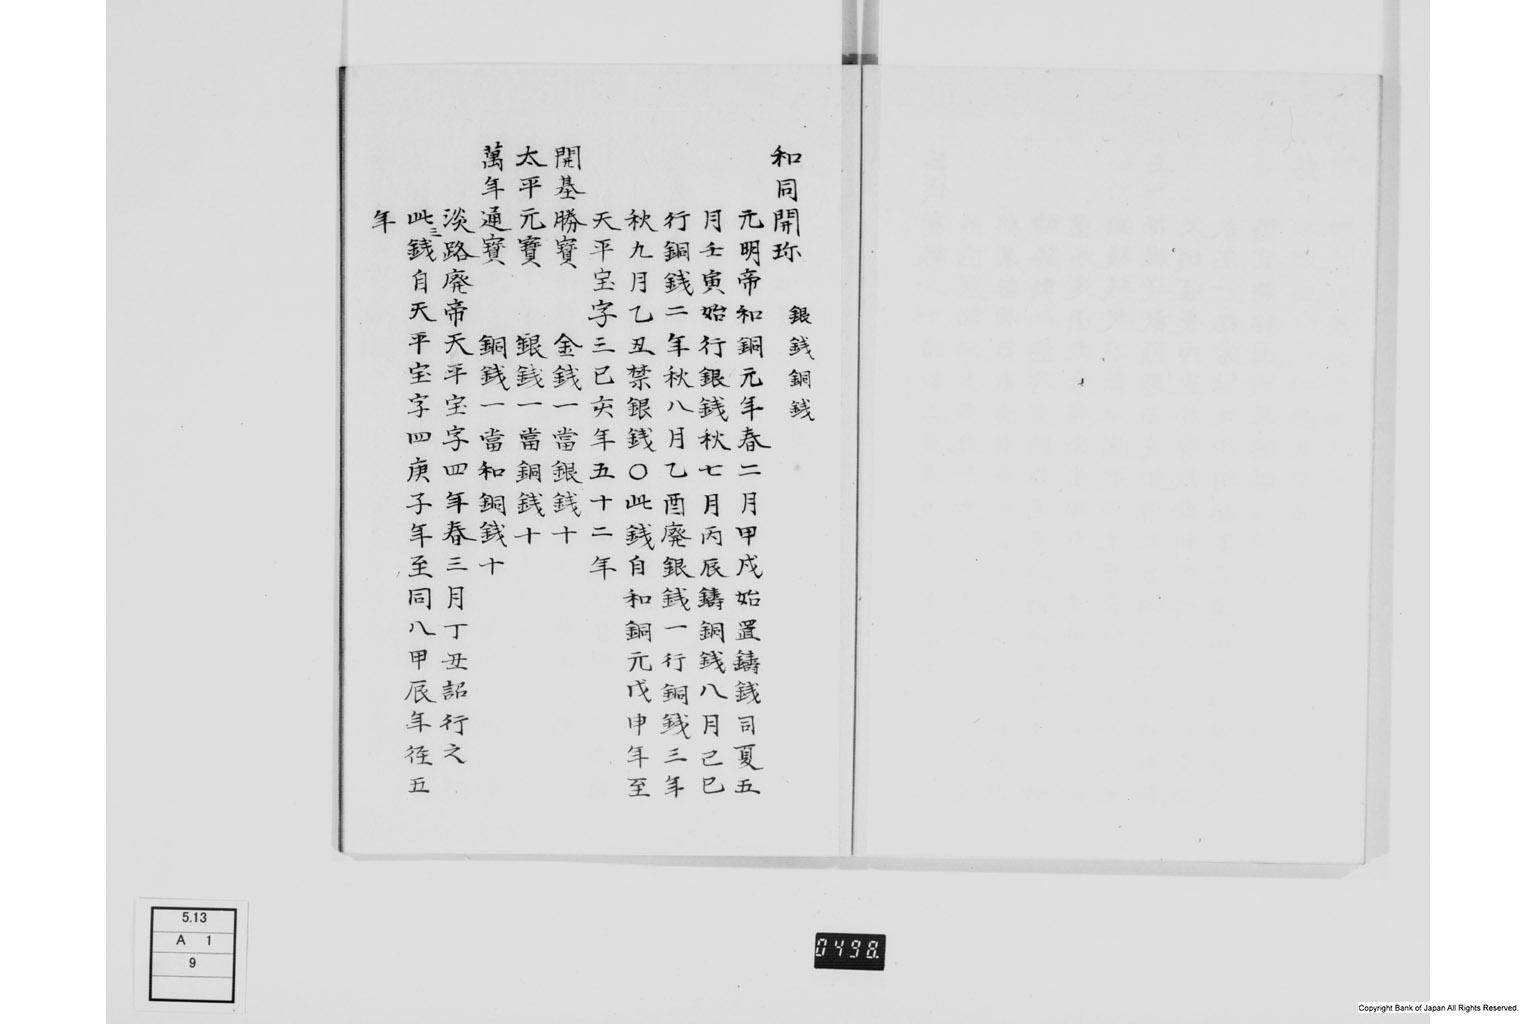 和同開珎　銀銭銅銭
元明帝和銅元年春二月甲戌始置鑄銭司夏五
月壬寅始行銀銭秋七月丙辰鑄銅銭八月己巳
行銅銭二年秋八月乙酉廃銀銭一行銅銭三年
秋九月乙丑禁銀銭〇此銭自和銅元戊申年至
天平宝字三己亥年五十二年
開基勝寶　金銭一當銀銭十
太平元寶　銀銭一當銅銭十
萬年通寶　銅銭一當和銅銭十
淡路廃帝天平宝字四年春三月丁丑詔行之
此三銭自天平宝字四庚子年至同八甲辰年径五
年
5.13
A 1
9
0498.
Copyright Bank of Japan All Rights Reserved.